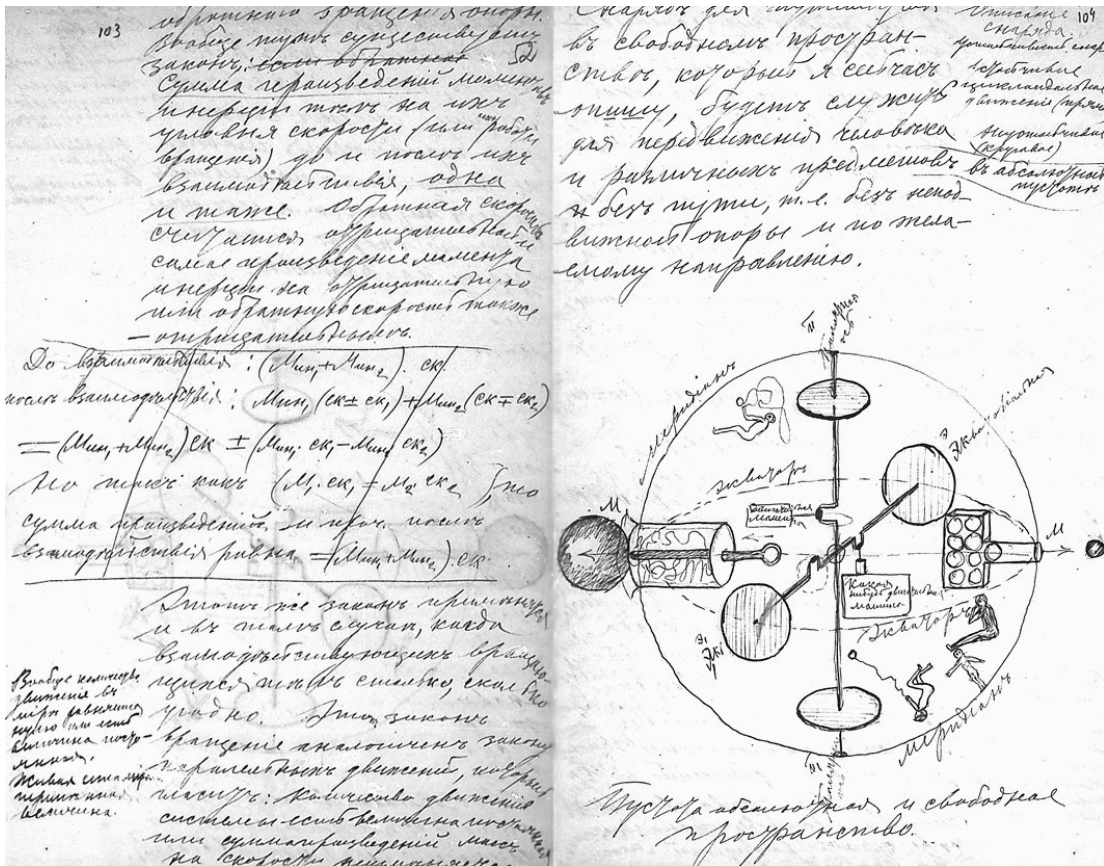 103
обратнаго вращенія опоры.
Вообще тутъ существуетъ
законъ:
52
Сумма произведеній моментовъ
инерціи тѣлъ на ихъ
угловыя скорости (или
вращенія) до и послѣ ихъ
взаимодѣйствія, одна
и таже. Обратная скорость
считается отрицательной и
самое произведеніе момента
инерціи на отрицательную
или обратную скорость также
— отрицательнымъ.
До взаимодѣйствія: (Мин₁+Мин₂). ск.
послѣ взаимодѣйствія: Мин₁(ск±ск₁)+Мин₂(ск∓ск₂)
=(Мин₁+Мин₂)ск ±(Мин₁.ск₁−Мин₂ ск₂)
Но такъ какъ (М₁.ск₁ = М₂.ск₂), то
сумма произведеній и проч. послѣ
взаимодѣйствія равна =(Мин₁+Мин₂).ск.
Этотъ же законъ примѣняется
и въ томъ случаѣ, когда
взаимодѣйствующихъ вращаю-
щихся тѣлъ столько, сколько
угодно. Этотъ законъ
вращенія аналогиченъ закону
паралельныхъ движеній, который
гласитъ: количество движенія
системы есть величина постоянная
или сумма произведеній массъ
на скорости
Вообще количество
движенія въ
мірѣ равняется
нулю или есть
величина посто-
янная.
Живая сила
величина.
104
Снарядъ для путешествія
въ свободномъ простран-
ствѣ, который я сейчасъ
опишу, будетъ служить
для передвиженія человѣка
и различныхъ предметовъ
и безъ пути, т.е. безъ непод-
вижной опоры и по жела-
емому направленію.
Описаніе
снаряда.
движенія
(круговое)
въ абсолютной
пустотѣ
меридіанъ
экваторъ
Экваторіальная
М
М
Какая
нибудь двигательная
машина
экваторъ
меридіанъ
Пустота абсолютная и свободное
пространство.